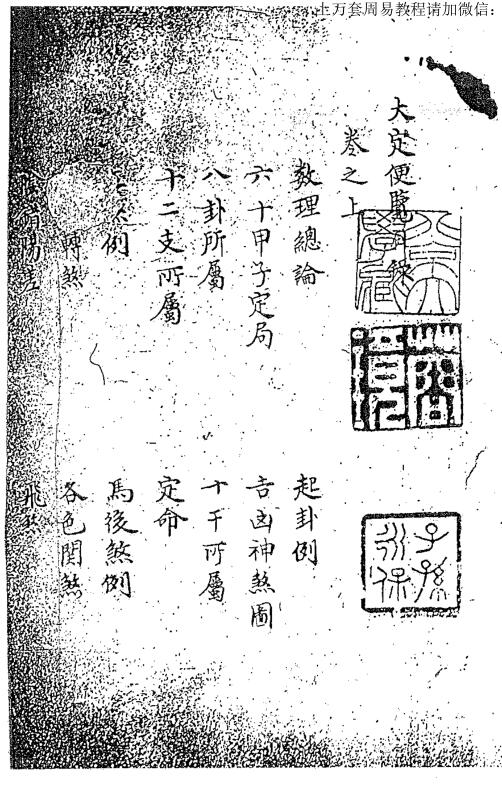 上万套周易教程请加微信：
大定便覽目錄
卷之上
數理總論
起卦例
六十甲子定局
吉凶神煞圖
八卦所屬
十干所屬
十二支所屬
定命
例
馬後煞例
轉煞
各色関煞
飛
子孫永保